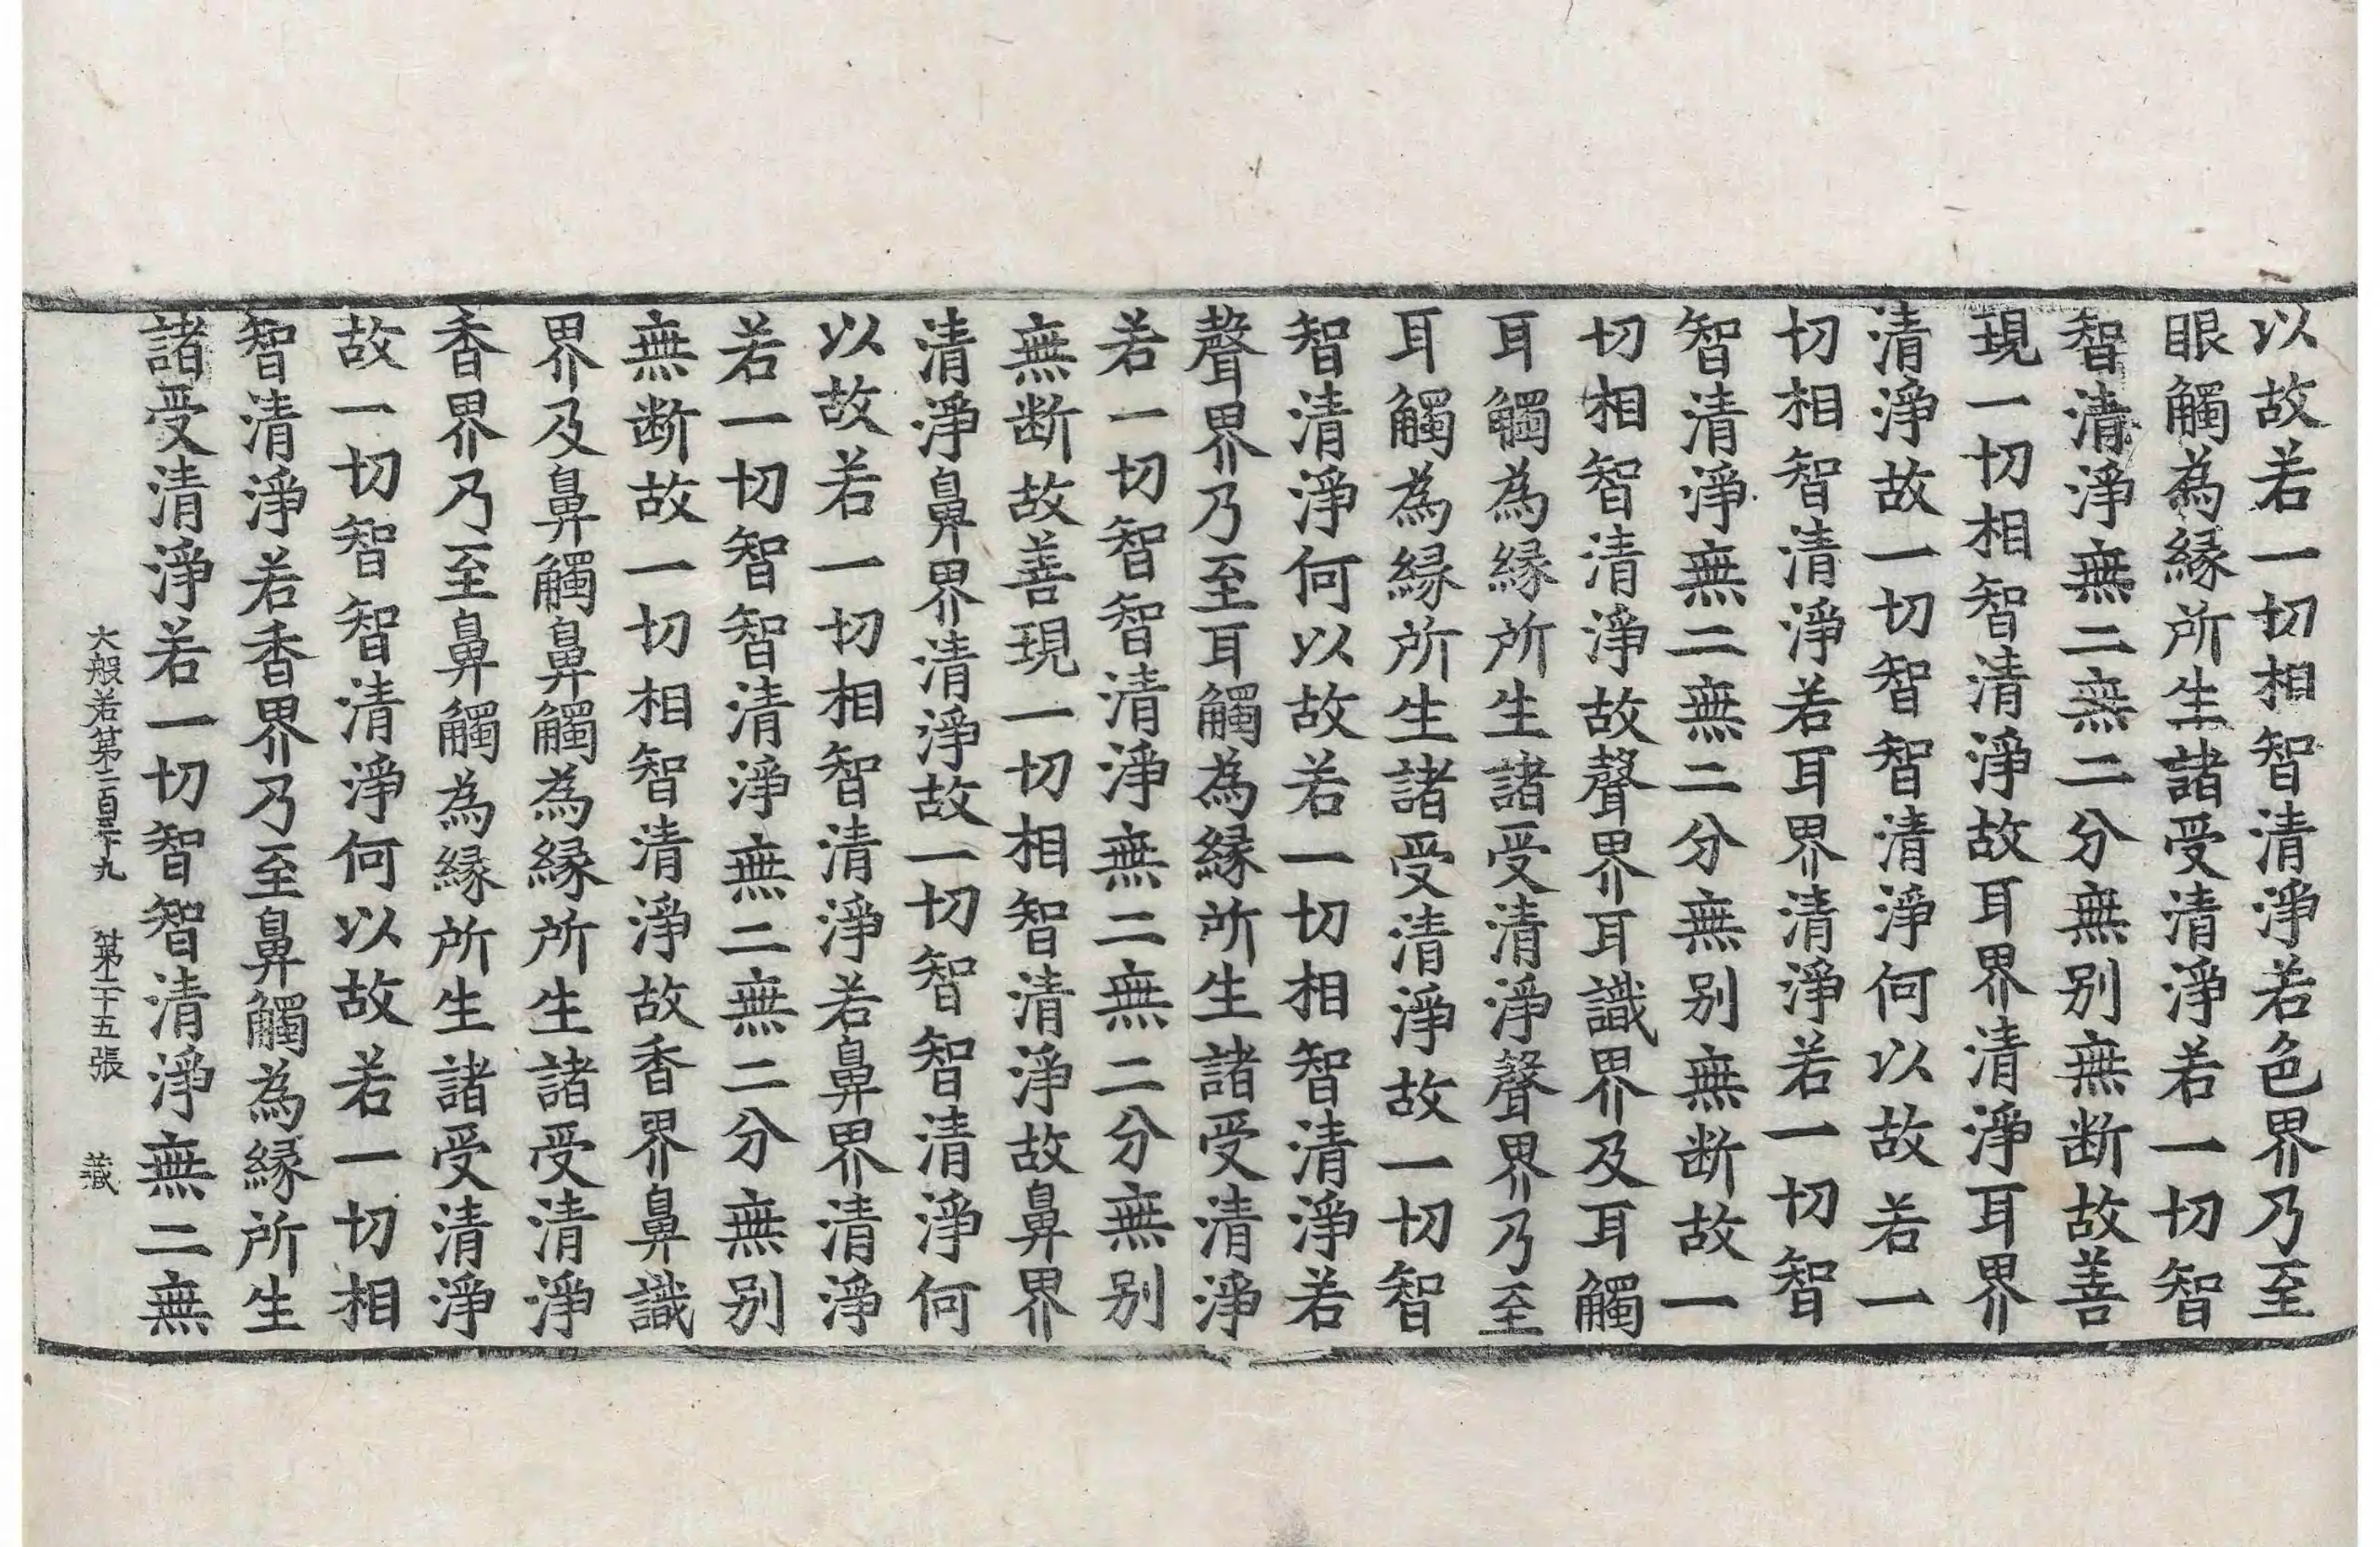 以故若一切相智清淨若色界乃至
眼觸為緣所生諸受清淨若一切智
智清淨無二無二分無別無断故善
現一切相智清淨故耳界清淨耳界
清淨故一切智智清淨何以故若一
切相智清淨若耳界清淨若一切智
智清淨無二無二分無别無断故一
切相智清淨故聲界耳識界及耳觸
耳觸為緣所生諸受清淨聲界乃至
耳觸為緣所生諸受清淨故一切智
智清淨何以故若一切相智清淨若
聲界乃至耳觸為緣所生諸受清淨
若一切智智清淨無二無二分無别
無断故善現一切相智清淨故鼻界
清淨鼻界清淨故一切智智清淨何
以故若一切相智清淨若鼻界清淨
若一切智智清淨無二無二分無别
無断故一切相智清淨故香界鼻識
界及鼻觸鼻觸為緣所生諸受清淨
香界乃至鼻觸為緣所生諸受清淨
故一切智智清淨何以故若一切相
智清淨若香界乃至鼻觸為緣所生
諸受清淨若一切智智清淨無二無
大般若第二百三十九 第二十五張 藏